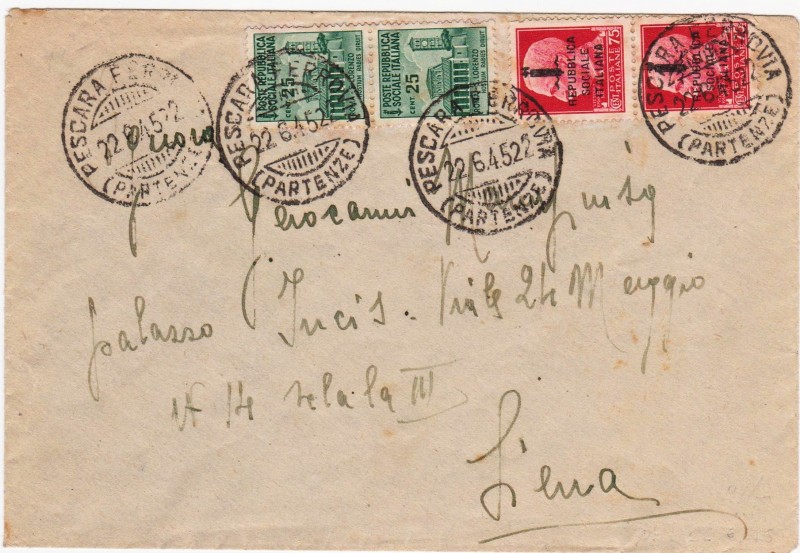 POSTE REPUBBLICA SOCIALE ITALIANA
CENT. 25
LORENZO
HOSTIUM RABIES DIRUIT
POSTE REPUBBLICA SOCIALE ITALIANA
CENT. 25
LORENZO
HOSTIUM RABIES DIRUIT
75
POSTE ITALIANE
REPUBBLICA
SOCIALE
ITALIANA
75
POSTE ITALIANE
REPUBBLICA
SOCIALE
ITALIANA
PESCARA FERROVIA
22.6.45 22
(PARTENZE)
PESCARA FERROVIA
22.6.45 22
(PARTENZE)
PESCARA FERROVIA
22.6.45 22
(PARTENZE)
PESCARA FERROVIA
(PARTENZE)
palazzo Incis. Viale 24 Maggio
N 14 scala III
Siena